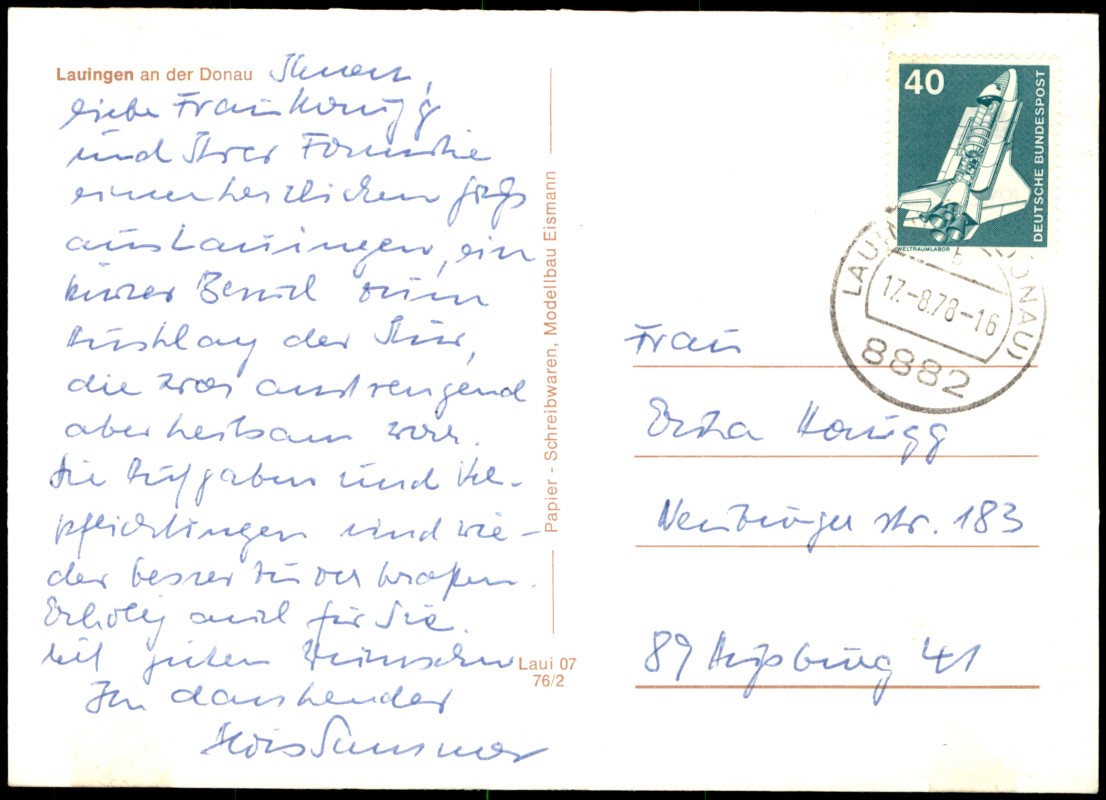 Lauingen an der Donau
Ihnen,
liebe Frau Honigg
und Ihrer Familie
einen herzlichen Gruß
aus Lauingen, ein
kurzer Besuch zum
Ausklag der Kur,
die zwar anstrengend
aber heilsam war.
Die Aufgaben und Ver-
pflichtungen sind wie-
der besser zu verkraften.
Erholg auch für Sie.
Mit guten Wünschen
Ihr dankender
Alois
Papier - Schreibwaren, Modellbau Eismann
Laui 07
76/2
40
DEUTSCHE BUNDESPOST
WELTRAUMLABOR
LAUIN (DONAU)
b
17.-8.78-16
8882
Frau
Erika Honigg
Neuburger Str. 183
89 Augsburg 41